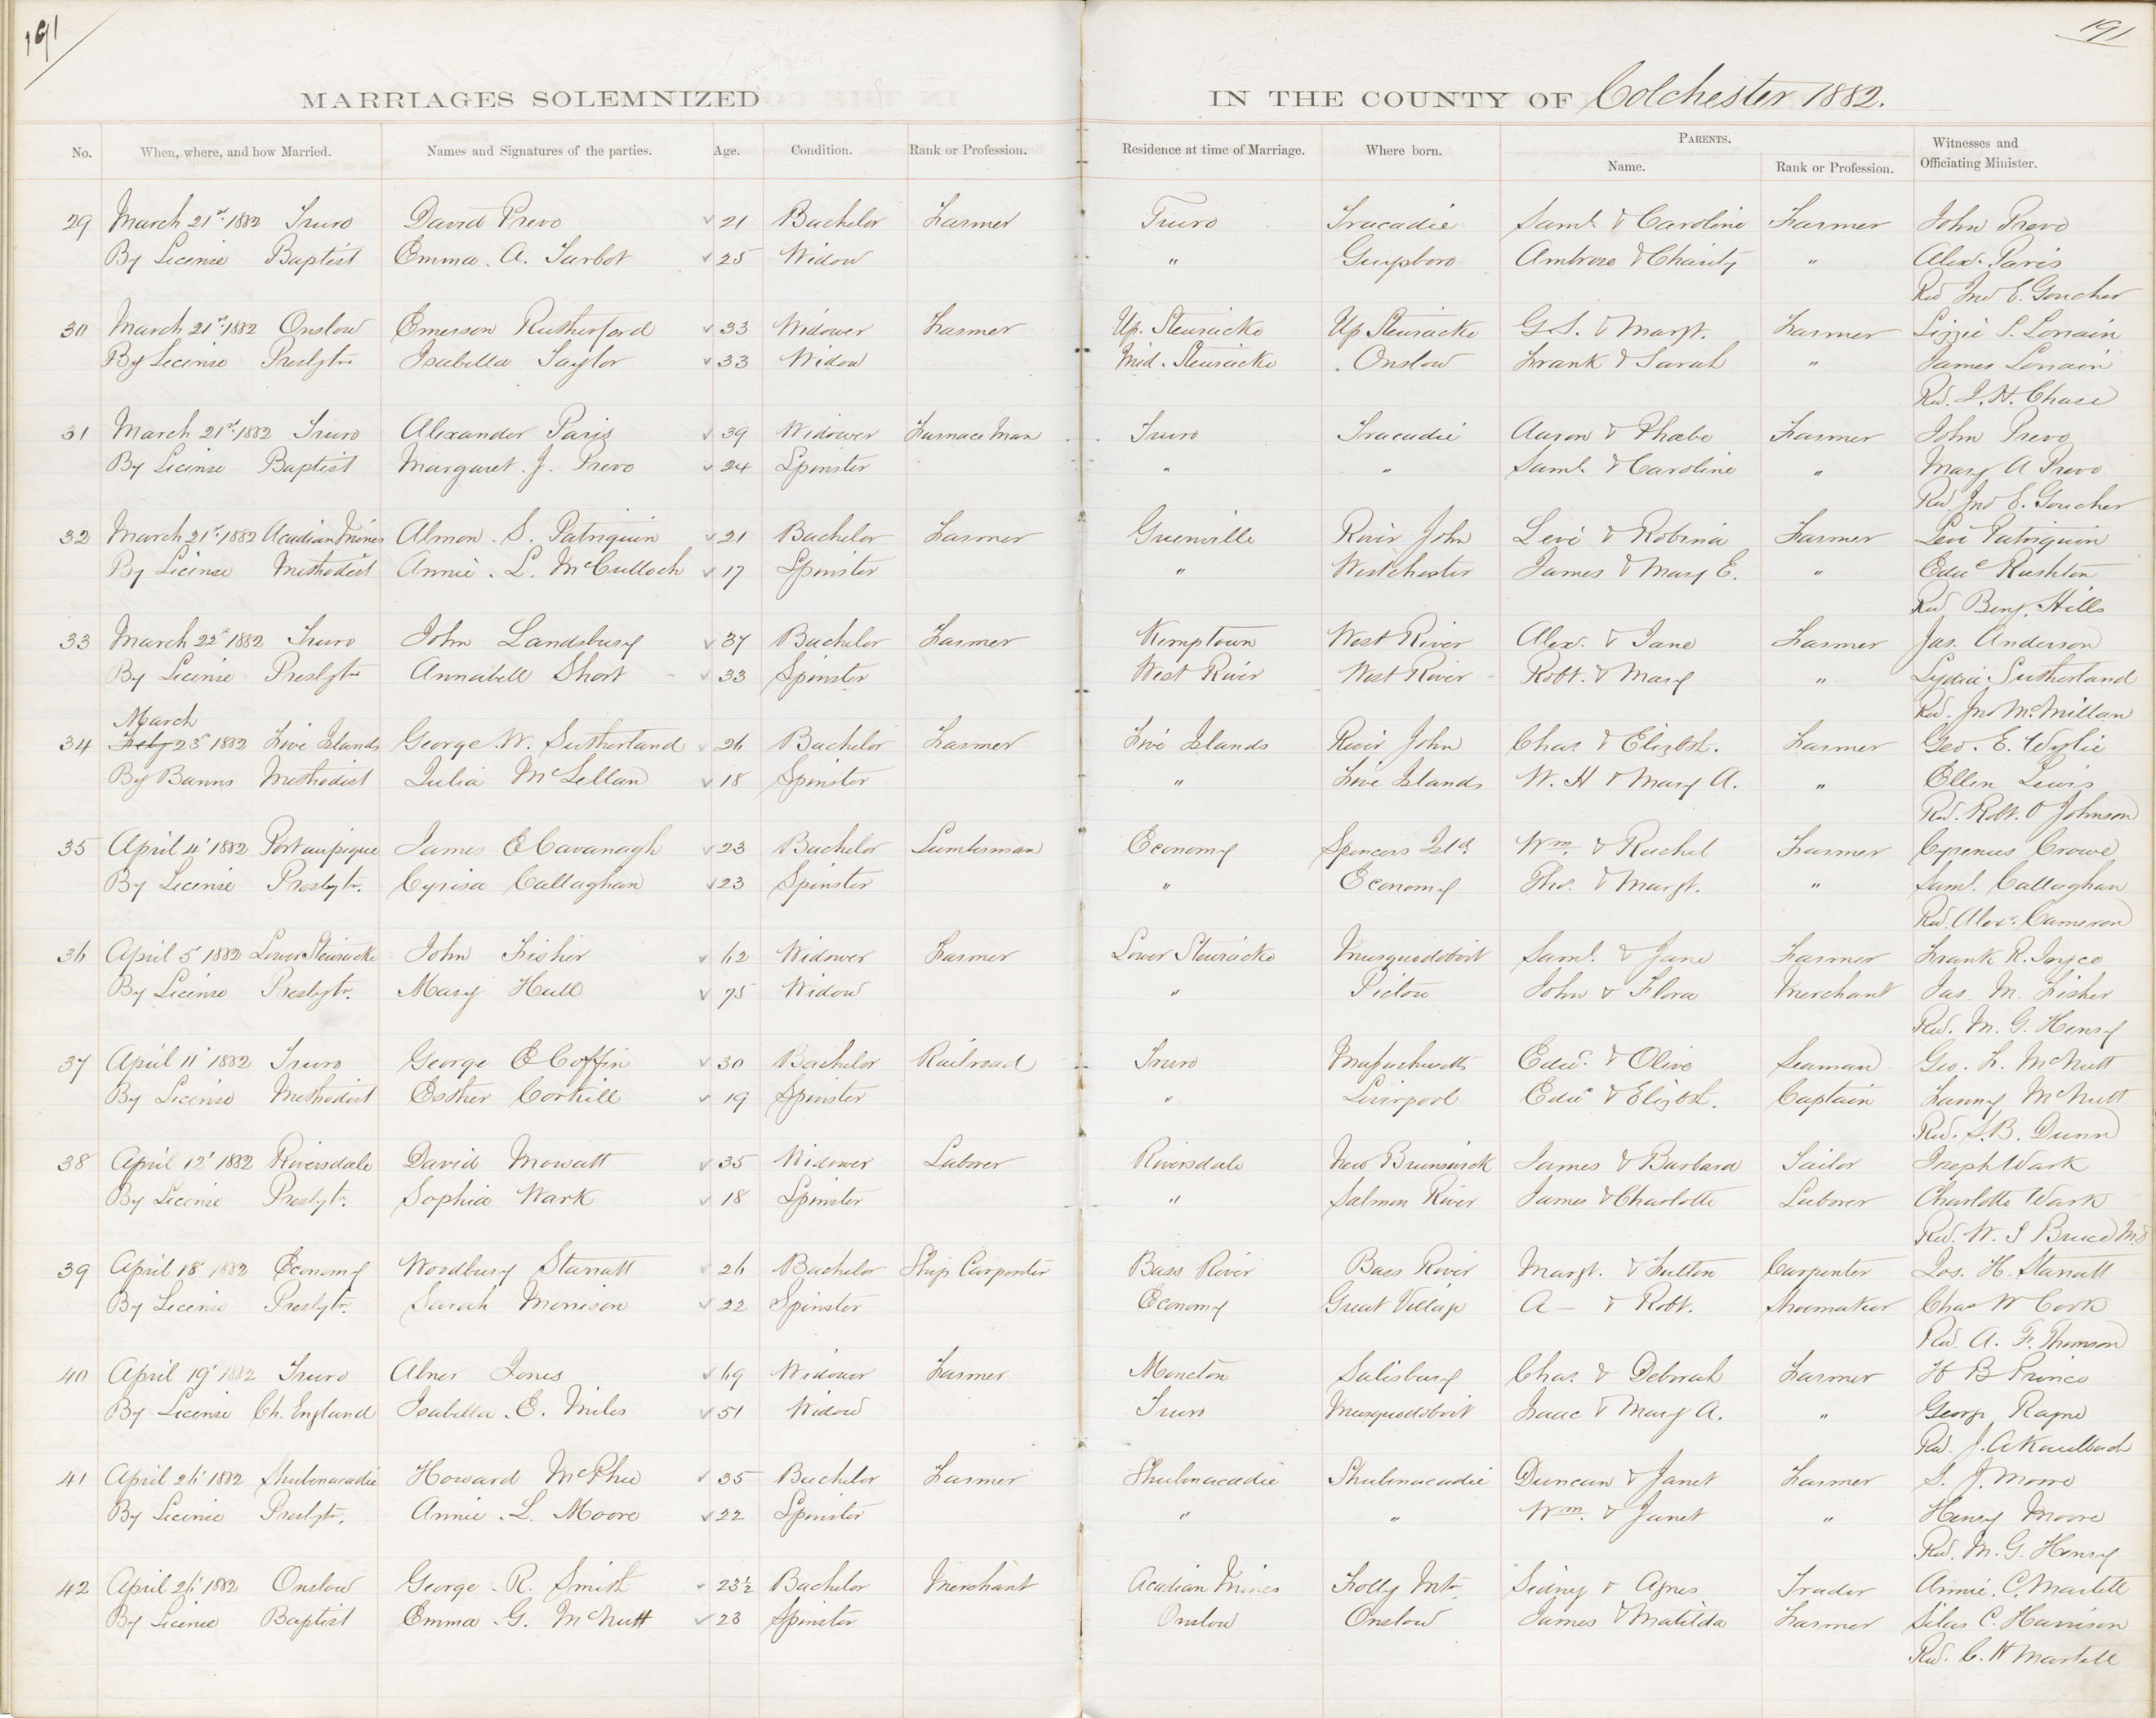 191
191
MARRIAGES SOLEMNIZED IN THE COUNTY OF Colchester 1882.
No. When, where, and how Married. Names and Signatures of the parties. Age. Condition. Rank or Profession. Residence at time of Marriage. Where born. PARENTS. Witnesses and
Name. Rank or Profession. Officiating Minister.
29 March 21st 1882 Truro David Prevo 21 Bachelor Farmer Truro Tracadie Saml. & Caroline Farmer John Prevo
By License Baptist Emma. A. Tarbot 25 Widow " Guysboro Ambrose & Charity " Alex. Paris
Rev Jno E. Goucher
30 March 21st 1882 Onslow Emerson Rutherford 33 Widower Farmer Up. Stewiacke Up Stewiacke G. S. & Margt. Farmer Lizzie S. Lorrain
By License Presbytn Isabella Taylor 33 Widow Mid. Stewiacke Onslow Frank & Sarah " James Lorrain
Rev. J. H. Chase
31 March 21st 1882 Truro Alexander Paris 39 Widower Furnace Man Truro Tracadie Aaron & Phœbe Farmer John Prevo
By License Baptist Margaret. J. Prevo 24 Spinster " " Saml. & Caroline " Mary A Prevo
Rev. Jno E. Goucher
32 March 21st 1882 Acadian Mines Almon. S. Patriquin 21 Bachelor Farmer Grenville River John Levi & Robina Farmer Levi Patriquin
By License Methodist Annie. L. McCulloch 17 Spinster " Westchester James & Mary E. " Edwd Rushton
Rev. Benj. Hills
33 March 22d 1882 Truro John Landsbury 37 Bachelor Farmer Kemptown West River Alex. & Jane Farmer Jas. Anderson
By License Presbytn Annabell Short 33 Spinster West River West River Robt. & Mary " Lydia Sutherland
March Rev. Jno McMillan
34 Feby 23d 1882 Five Islands George W. Sutherland 26 Bachelor Farmer Five Islands River John Chas & Elizbt. Farmer Geo. E. Wylie
By Banns Methodist Julia McLellan 18 Spinster " Five Islands W. H & Mary A. " Ellen Lewis
Rev. Robt. O Johnson
35 April 4' 1882 Portaupique James E Cavanagh 23 Bachelor Lumberman Economy Spencers Isld. Wm. & Rachel Farmer Cyrenus Crowe
By License Presbytr. Cyrisa Callaghan 23 Spinster " Economy Thos. & Margt. " Saml. Callaghan
Rev. Alex. Cameron
36 April 5 1882 Lower Stewiacke John Fisher 62 Widower Farmer Lower Stewiacke Musquodoboit Saml. & Jane Farmer Frank R. Joyce
By License Presbytr. Mary Hull 75 Widow " Pictou John & Flora Merchant Jas. M. Fisher
Rev. M. G. Henry
37 April 11' 1882 Truro George E Coffin 30 Bachelor Railroad Truro Massachusetts Edwd. & Olive Seaman Geo. L. McNutt
By License Methodist Esther Corkill 19 Spinster " Liverpool Edwd & Elizbt. Captain Fanny McNutt
Rev. S. B. Dunn
38 April 12' 1882 Riversdale David Mowatt 35 Widower Laborer Riversdale New Brunswick James & Barbara Sailor Joseph Wark
By License Presbyt. Sophia Wark 18 Spinster " Salmon River James & Charlotte Laborer Charlotte Wark
Rev. W. S Bruce
39 April 18 1882 Economy Woodbury Starratt 26 Bachelor Ship Carpenter Bass River Bass River Margt. & Fulton Carpenter Jos. H. Starratt
By License Presbytr. Sarah Morrison 22 Spinster Economy Great Village A— & Robt. Shoemaker Chas W Cook
Rev. A. F. Thomson
40 April 19' 1882 Truro Abner Jones 69 Widower Farmer Moncton Salisbury Chas. & Deborah Farmer H B Prince
By License Ch. England Isabella. E. Miles 51 Widow Truro Musquodoboit Isaac & Mary A. " George Rayne
Rev. J. A Kaulbach
41 April 26' 1882 Shubenacadie Howard McPhee 35 Bachelor Farmer Shubenacadie Shubenacadie Duncan & Janet Farmer S. J. Moore
By License Presbytr. Annie. L. Moore 22 Spinster " " Wm. & Janet " Henry Moore
Rev. M. G. Henry
42 April 26' 1882 Onslow George. R. Smith 23½ Bachelor Merchant Acadian Mines Folly Mtn Sidney & Agnes Trader Annie. C. Martell
By License Baptist Emma. G. McNutt 23 Spinster Onslow Onslow James & Matilda Farmer Silas C. Harrison
Rev. C. H Martell